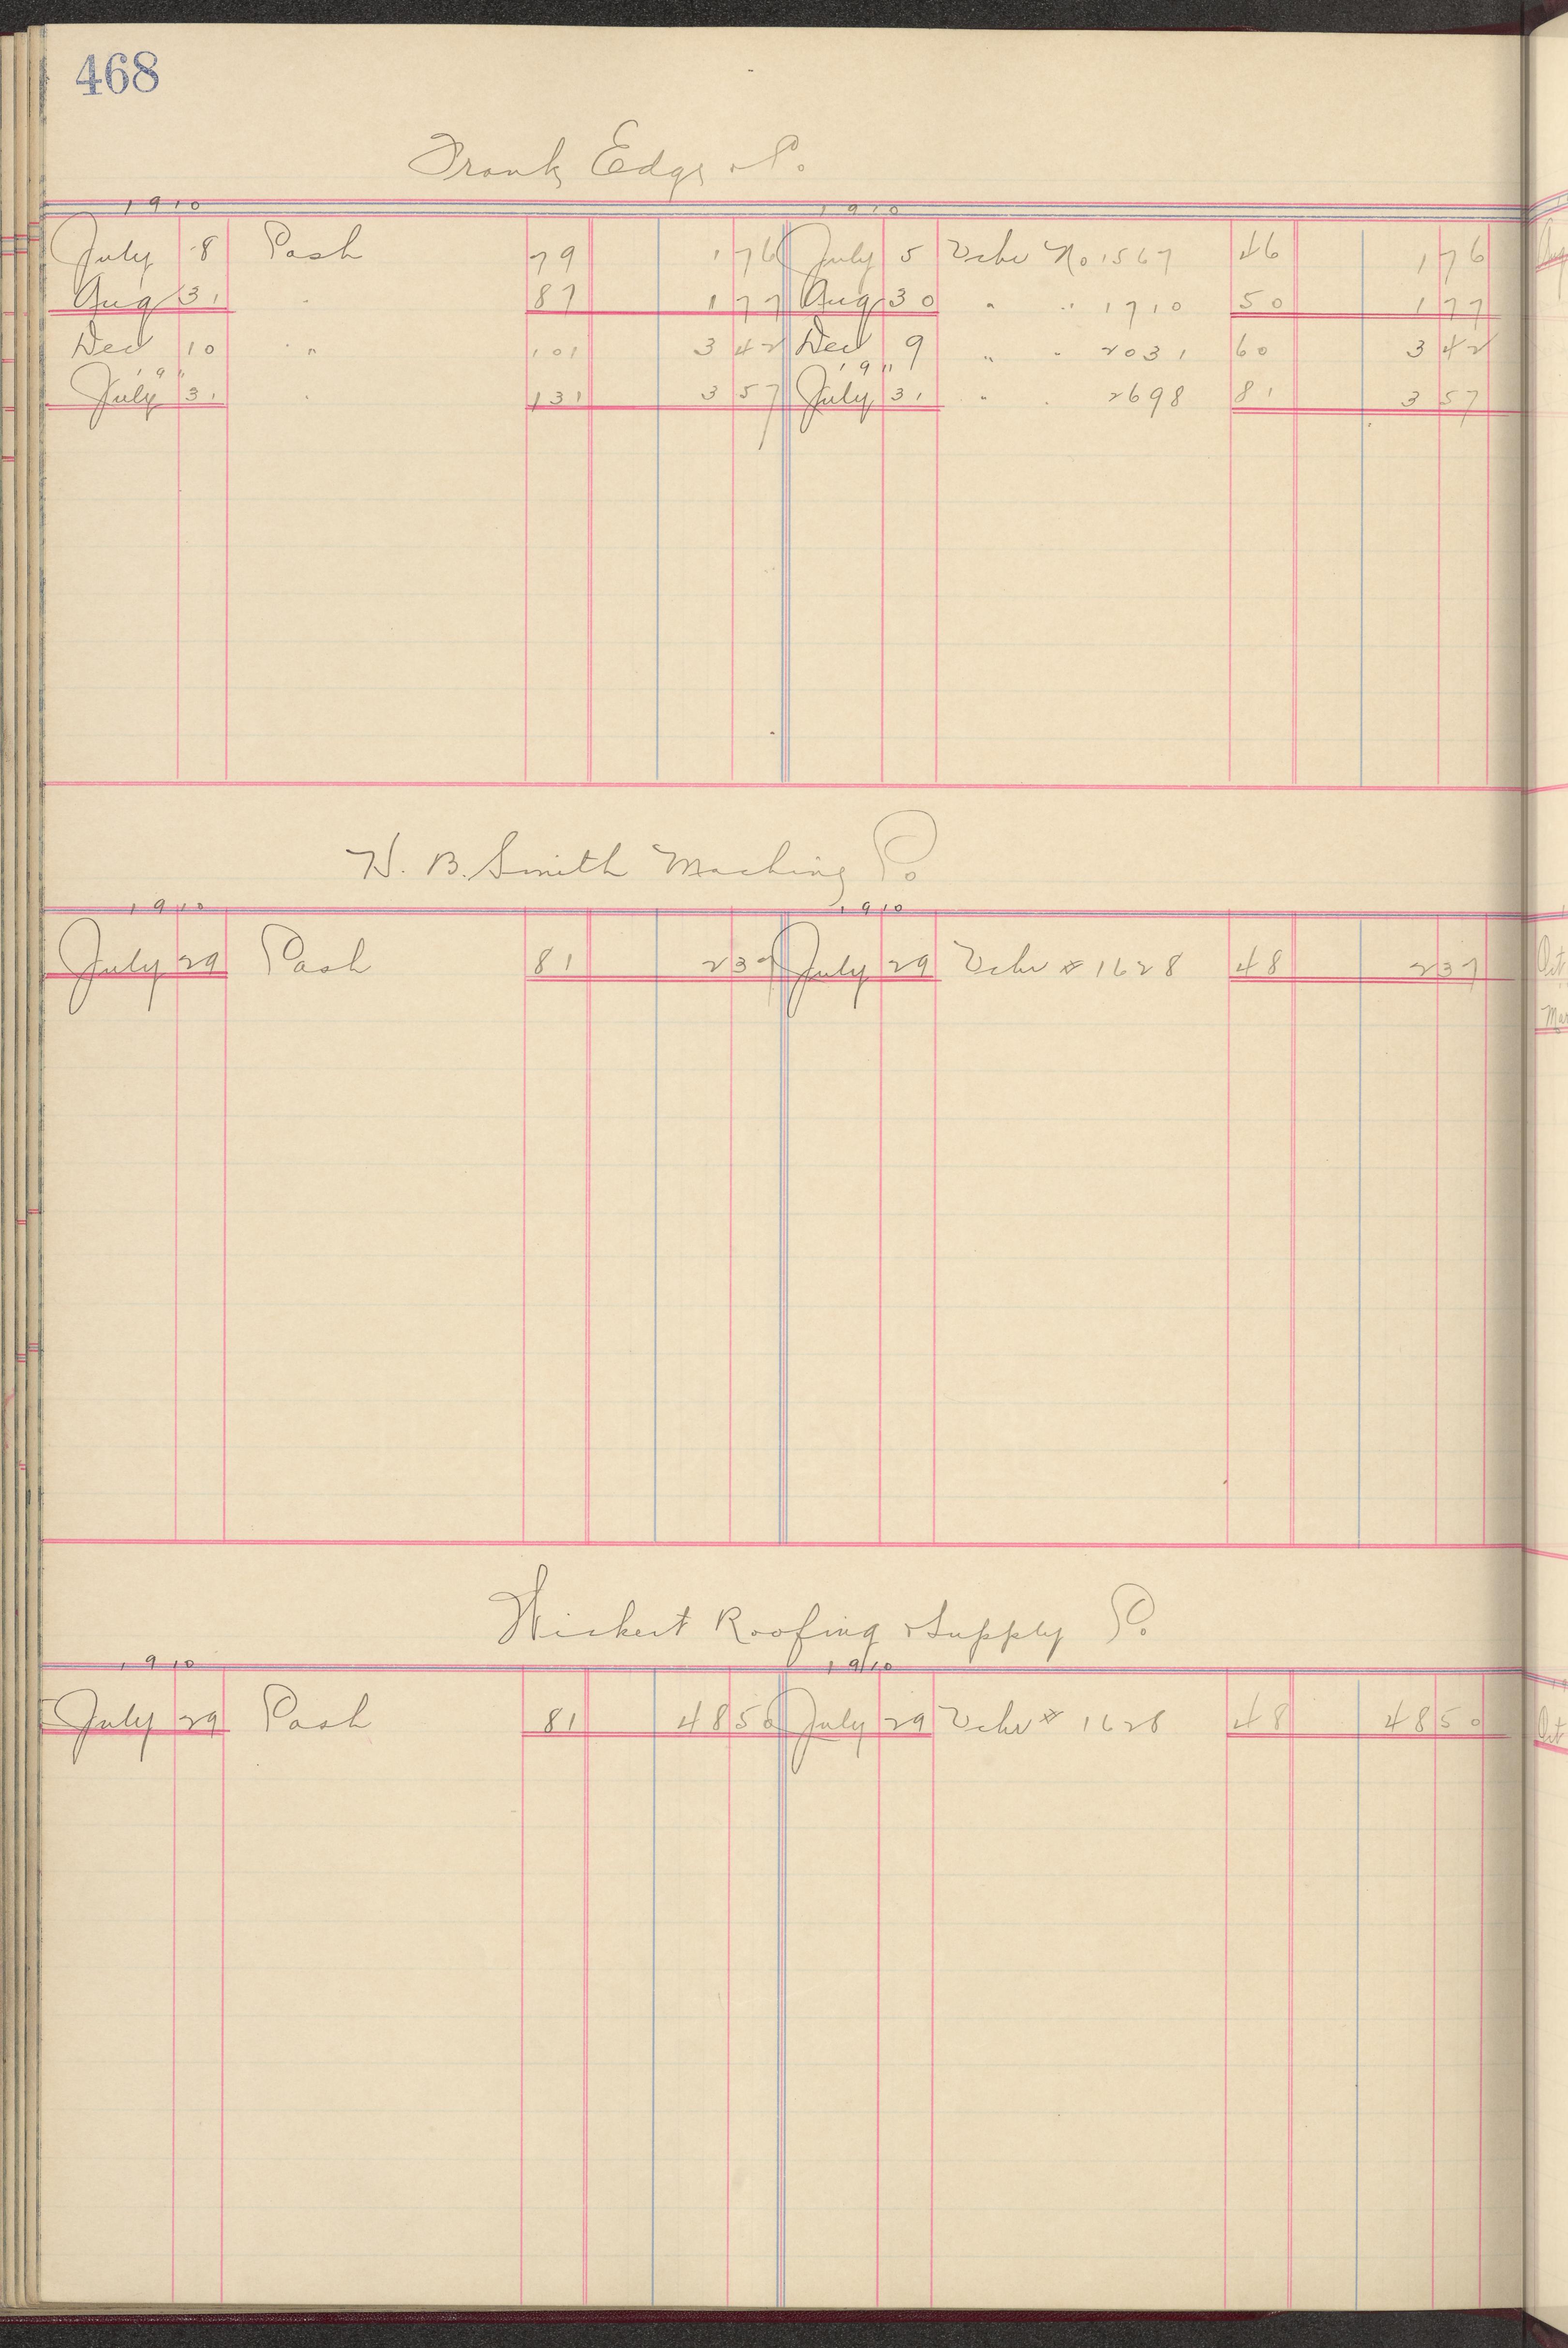 468
Frank Edge Co.
1910 1910
July 8 Cash 79 1 76 July 5 Vchr No 1567 46 1 76
Aug 31 " 87 1 77 Aug 30 " " 1710 50 1 77
Dec 10 " 101 3 42 Dec 9 " " 2031 60 3 42
1911 1911
July 31 " 131 3 57 July 31 " " 2698 81 3 57
H. B. Smith Machine Co
1910 1910
July 29 Cash 81 2 37 July 29 Vchr # 1628 48 2 37
Roofing & Supply Co.
1910 1910
July 29 Cash 81 48 50 July 29 Vchr # 1628 48 48 50
Oct
Mar
Oct